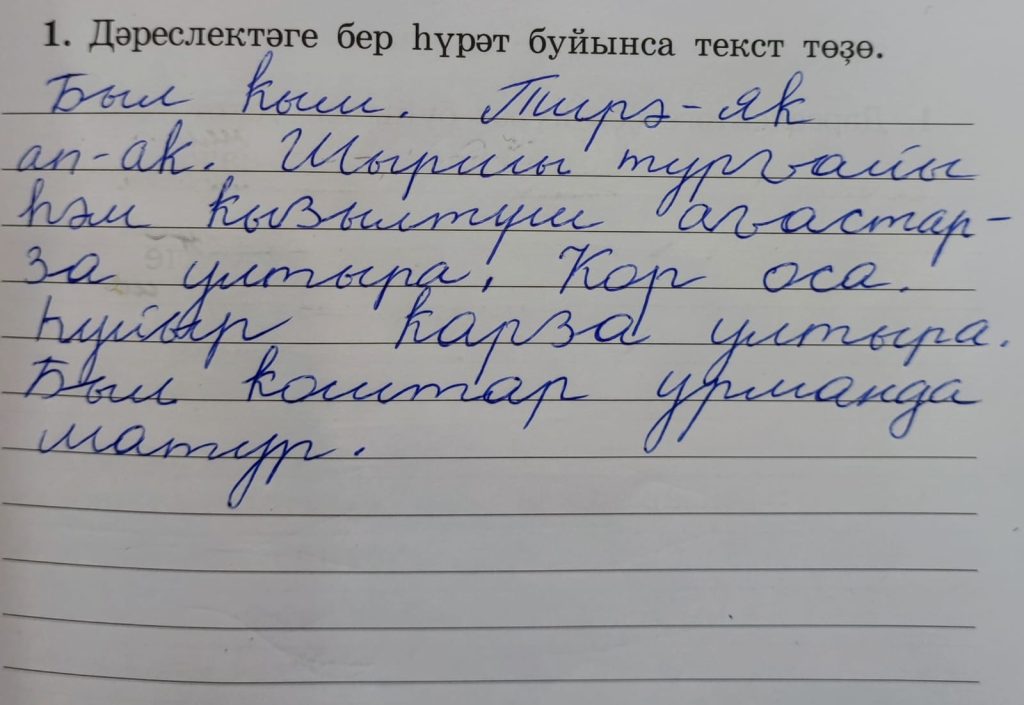 1. Дәреслектәге бер һүрәт буйынса текст төҙө.
Был ҡыш. Тирә-як
ап-ак. Шыршы турғайы
һәм ҡызылтүш ағастар-
за ултыра. Кор оса.
Һуйыр ҡарза ултыра.
Был ҡоштар урманда
матур.